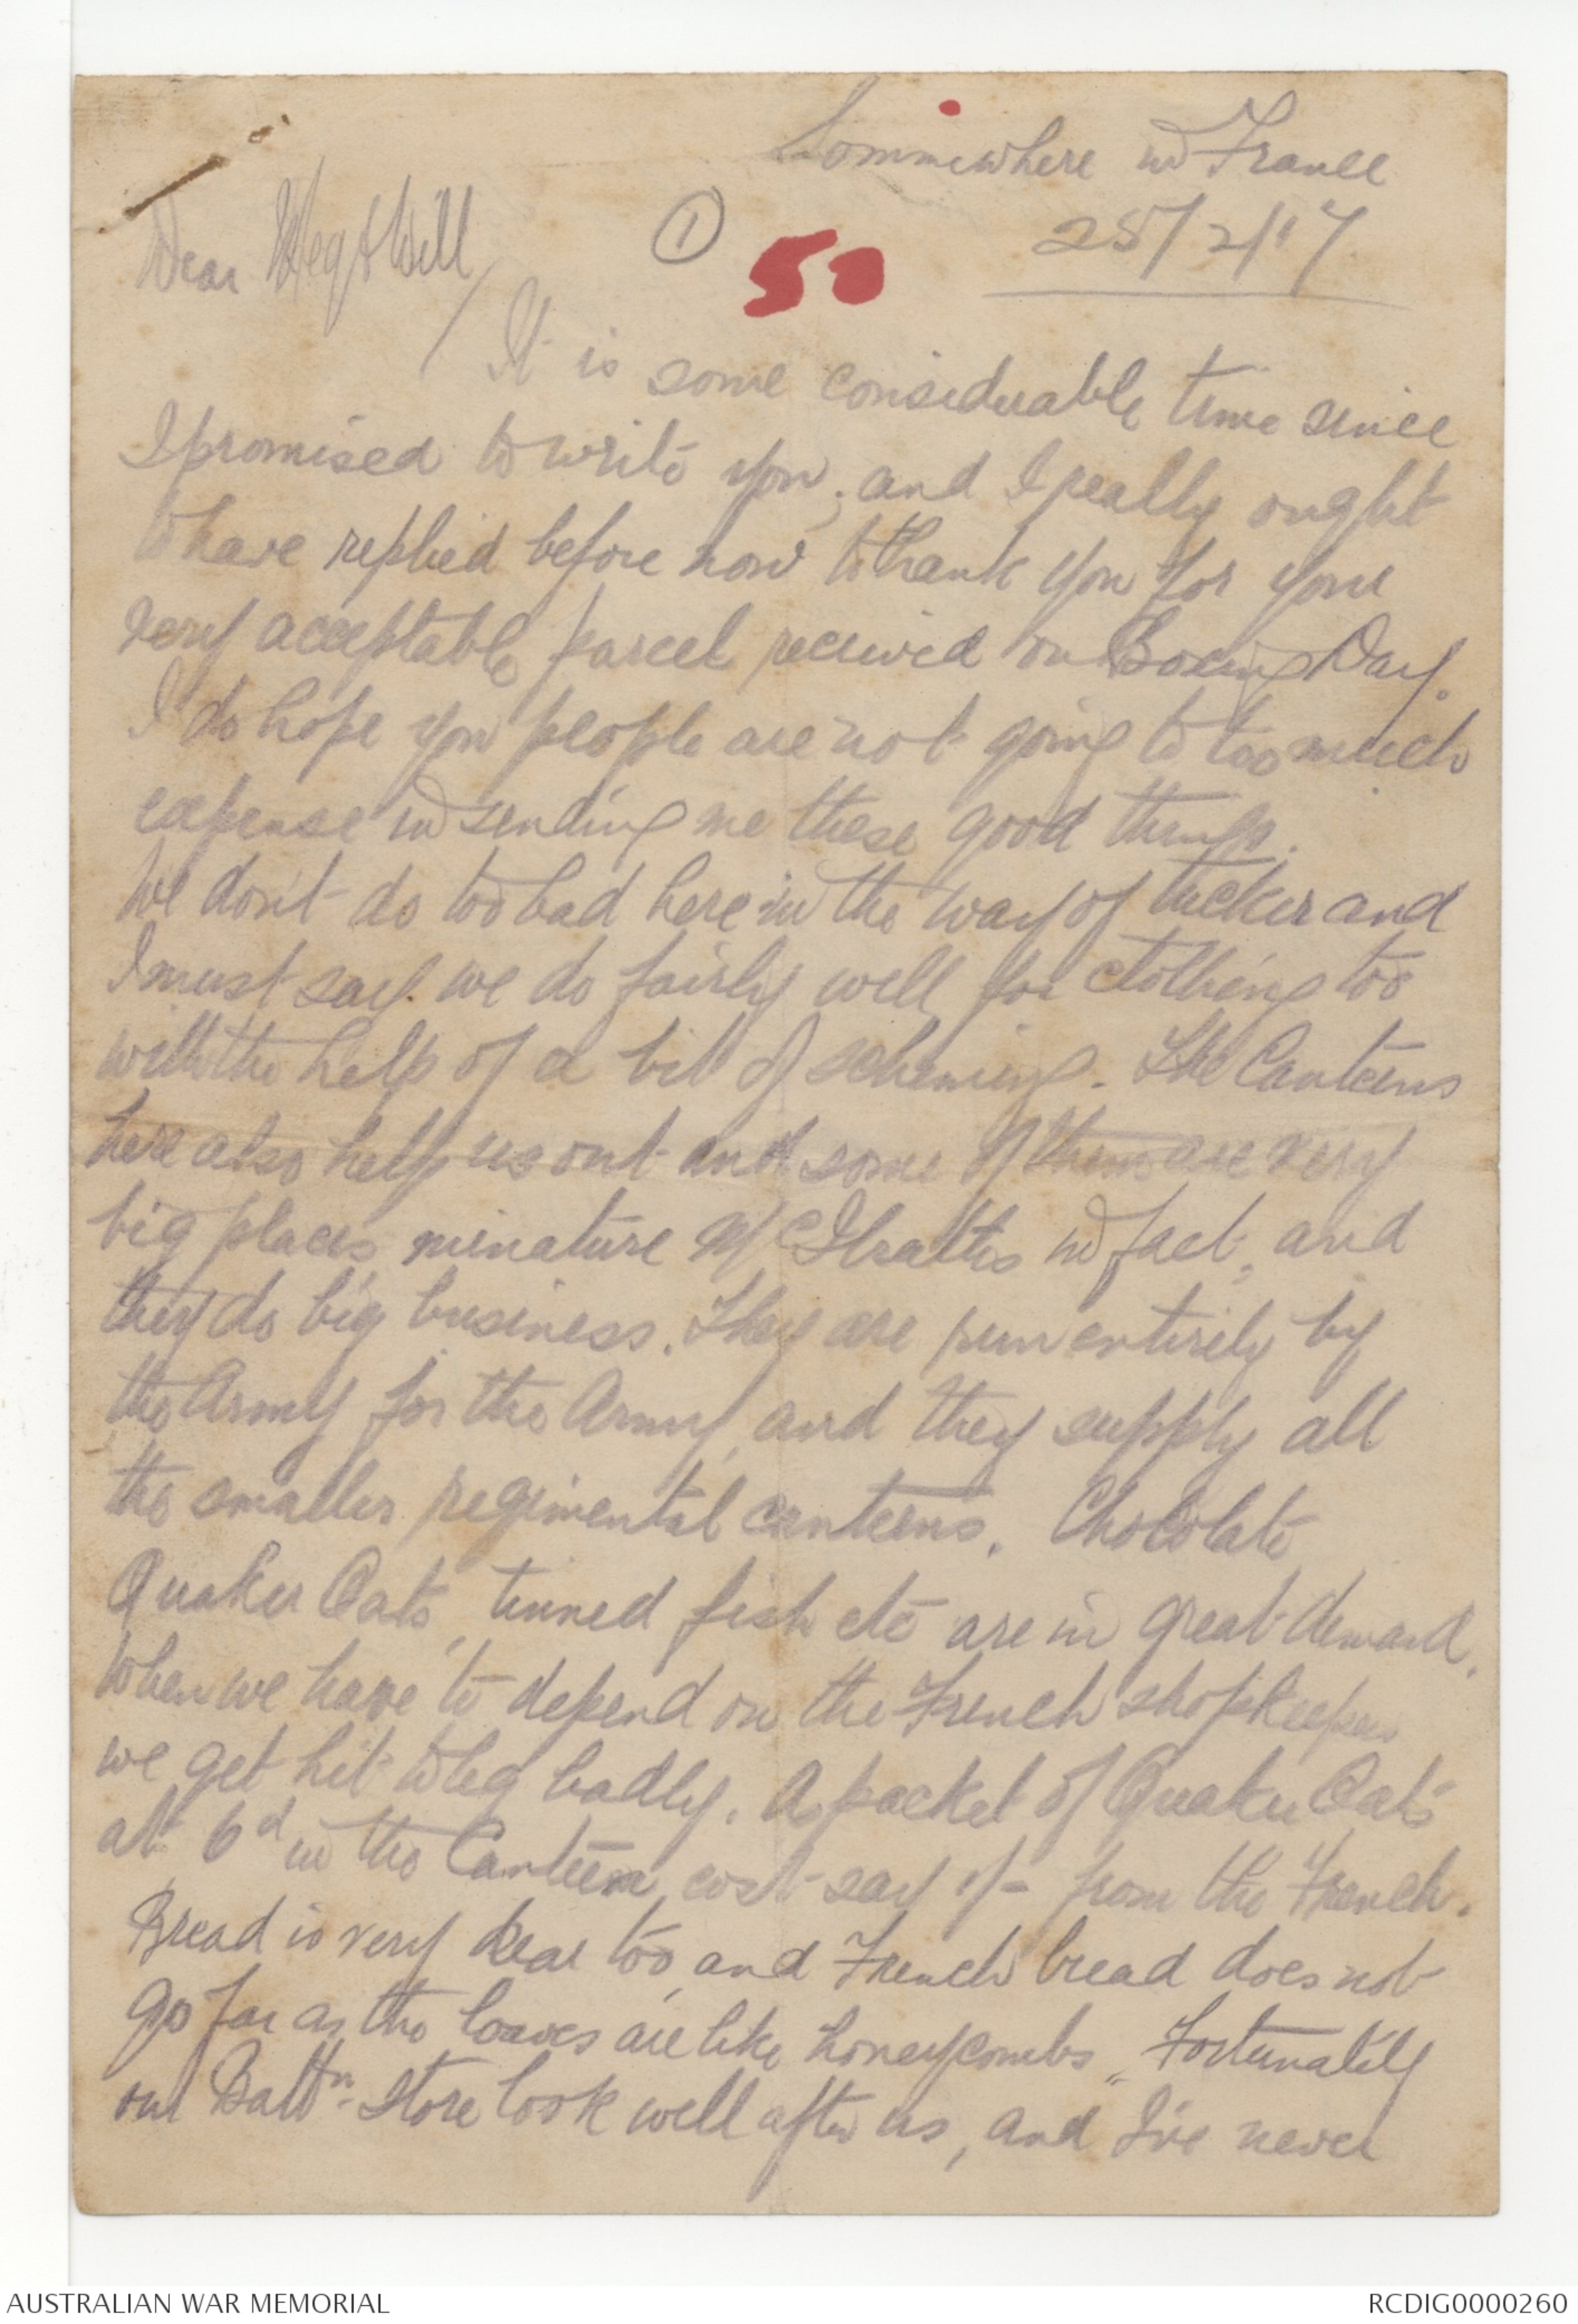 Sommewhere in France
25/2/17
① 50
Dear Meg & Will,
It is some considerable time since
I promised to write you, and I really ought
to have replied before now to thank you for your
very acceptable parcel received on Boxing Day.
I do hope you people are not going to too much
expense in sending me these good things.
We don't do too bad here in the way of tucker and
I must say we do fairly well for clothing too
with the help of a bit of scheming. The Canteens
here also help us out and some of them are very
big places minature McIlraths in fact, and
they do big business. They are run entirely by
the Army for the Army, and they supply all
the smaller regimental canteens. Chocolate
Quaker Oats, tinned fish etc are in great demand.
When we have to depend on the French shopkeepers
we get hit to leg badly. A packet of Quaker Oats
at 6d in the Canteen cost say 1/- from the French.
Bread is very dear too, and French bread does not
go far as the loaves are like honeycombs. Fortunately
our Battn. Store look well after us, and I've never
AUSTRALIAN WAR MEMORIAL
RCDIG0000260